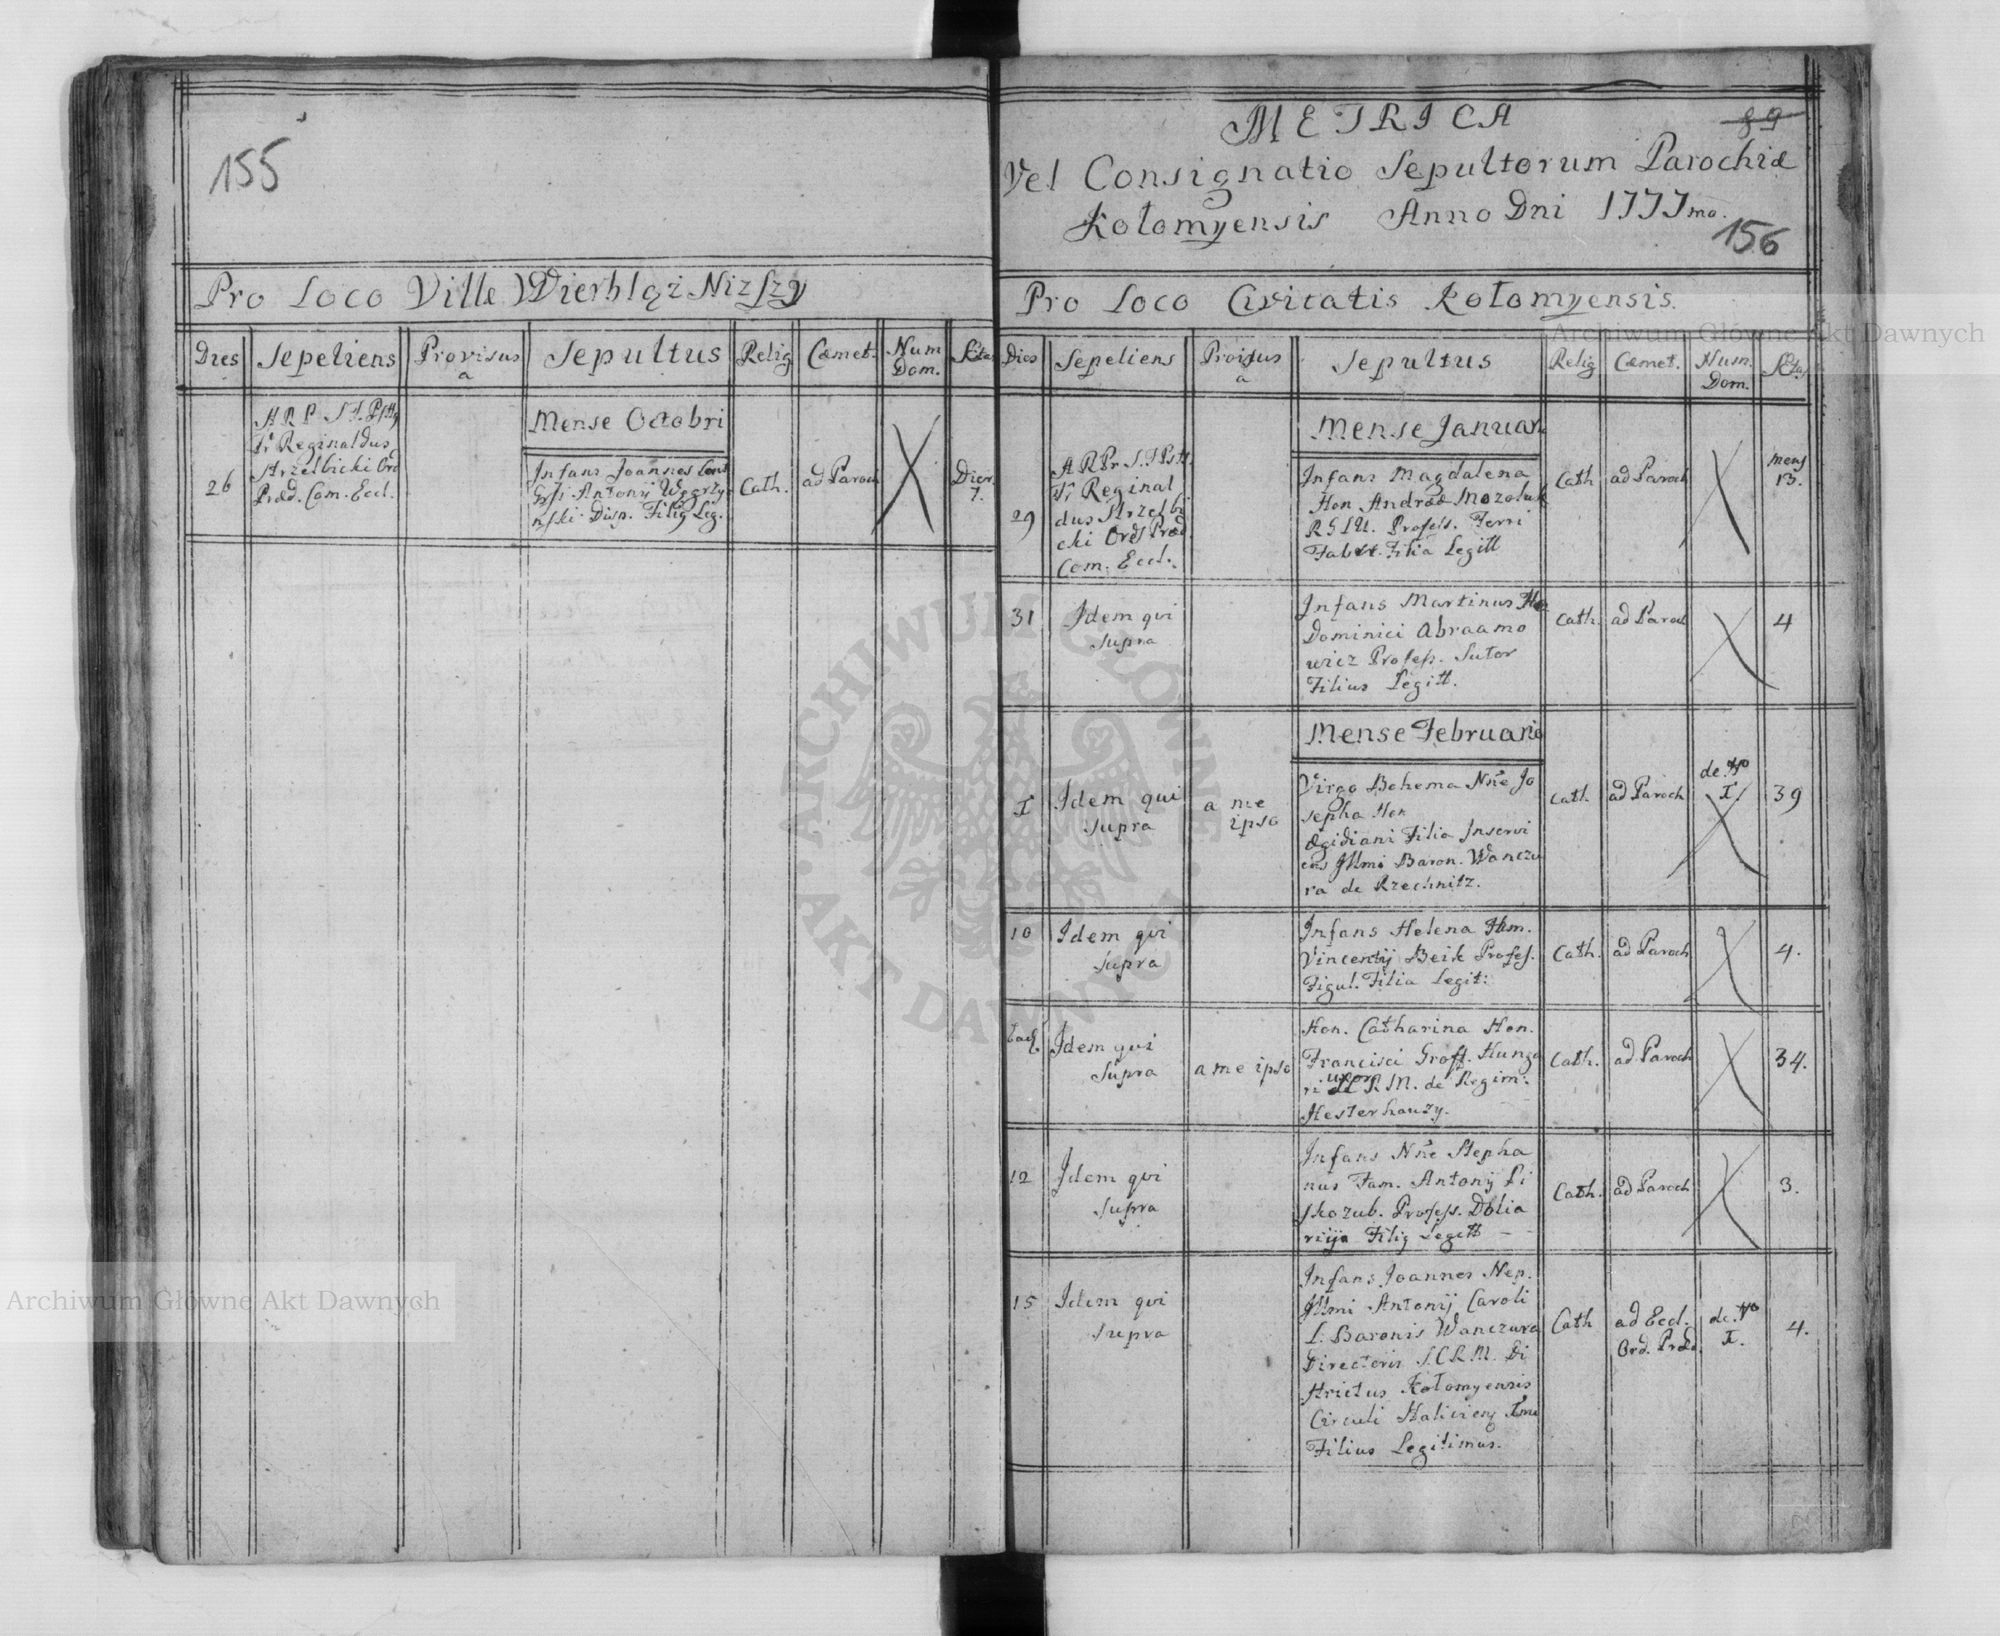 155
Pro Loco Ville Wierbląż Niższy
Dies Sepeliens Provisus a Sepultus Relig Cæmet. Num Dom. Ætas
Mense Octobri
26
A R P S. T.
Fr Reginaldus
Strzelbicki Ord
Præd. Com. Eccl.
Infans Joannes
Antonij Węgrzy
nski Disp. Filiq Leg.
Cath.
ad Paroch
Dier.
7.
METRICA
89
Vel Consignatio Sepultorum Parochiæ
Kołomyensis Anno Dni 1777mo.
156
Pro Loco Civitatis Kołomyensis.
Dies Sepeliens Proisus a Sepultus Relig Cæmet. Num. Dom. Ætas
Mense Januari
29
A R Pr S. T
Fr Reginal
dus Strzelbi
cki Ords Præd.
Com. Eccl.
Infans Magdalena
Hon Andreæ Mozoluk
Profess. Ferri
Fabr. Filia Legitt
Cath
ad Paroch
mens
13.
31
Idem qvi
supra
Infans Martinus Hon
Dominici Abraamo
wicz Profess. Sutor
Filius Legitt.
Cath.
ad Paroch
4
Mense Februario
I
Idem qui
supra
a me
ipso
Virgo Bohema Nne Jo
sepha Hon
Ægidiani Filia Inservi
ens Illmi Baron. Wanczu
ra de Rzechnitz.
Cath.
ad Paroch
de No
I.
39
10
Idem qvi
supra
Infans Helena Fam.
Vincentij Beik Profess.
Figul. Filia Legit:
Cath.
ad Paroch
4.
Ead
Idem qvi
Supra
a me ipso
Hon. Catharina Hon.
Francisci Groff. Hunga
ri uxor R. M. de Regim:
Hesterhauzy.
Cath.
ad Paroch
34.
12
Idem qvi
supra
Infans Nne Stepha
nus Fam. Antonij Li
skozub. Profess. Dolia
rij Filiq Legitt
Cath.
ad Paroch
3.
15
Idem qvi
supra
Infans Joannes Nep.
Illmi Antonij Caroli
L. Baronis Wanczura
Directoris S.C.R.M. Di
strictus Kołomyensis
Circuli Haliciens
Filius Legitimus.
Cath
ad Eccl.
Ord. Præd.
de No
I.
4.
Archiwum Główne Akt Dawnych
ARCHIWUM GŁÓWNE
AKT DAWNYCH
Archiwum Główne Akt Dawnych